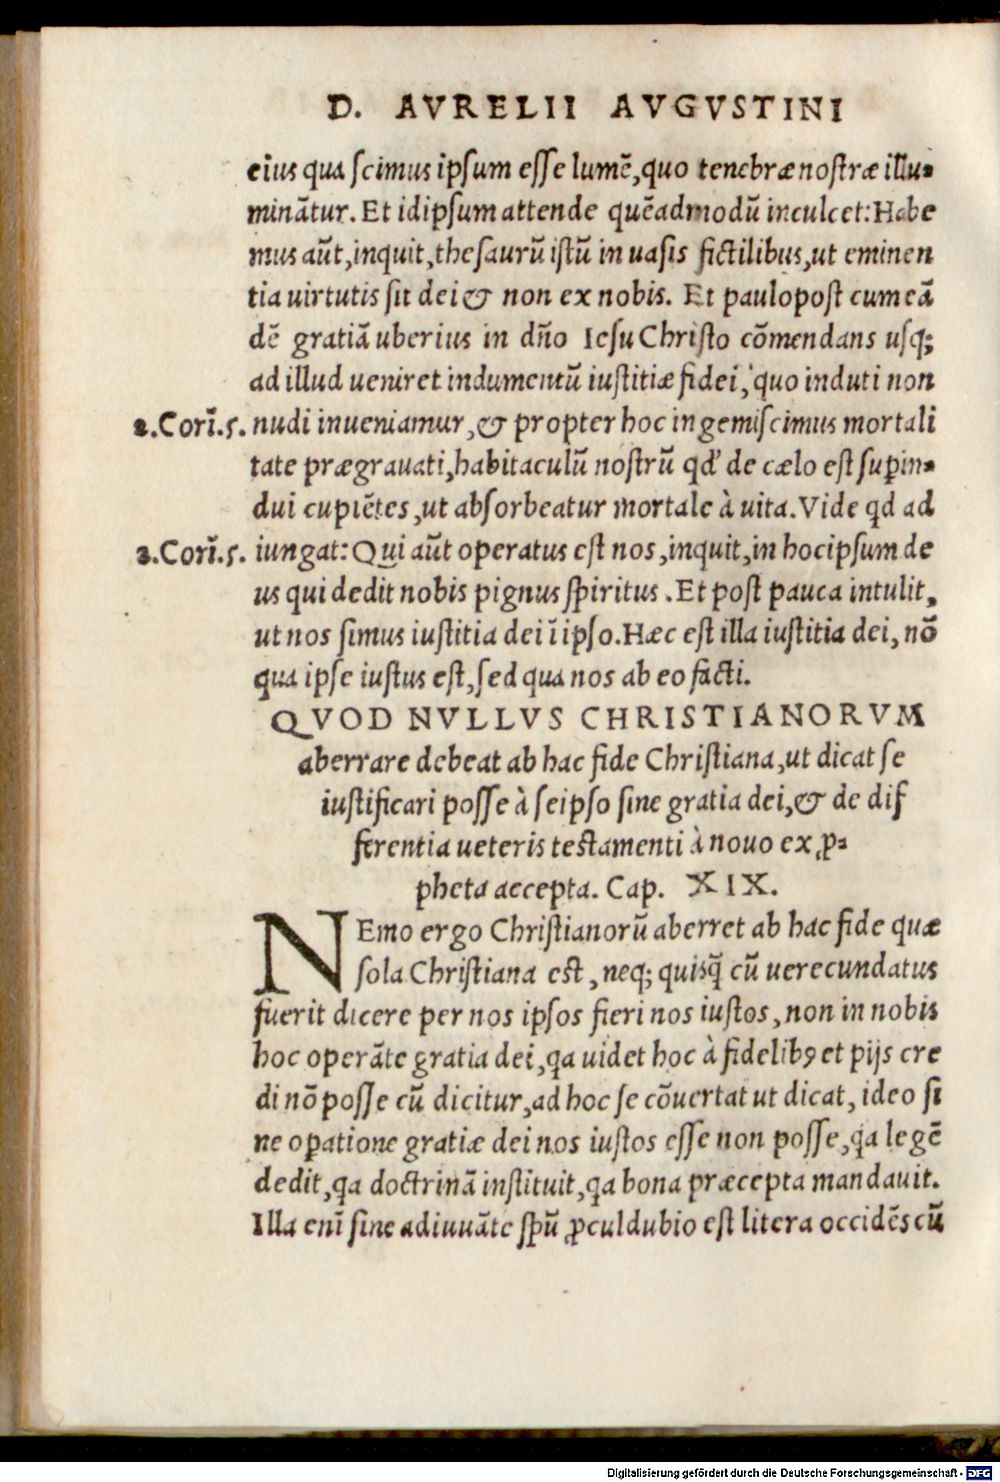 D. AVRELII AVGVSTINI
eius qua scimus ipsum esse lumē, quo tenebræ nostræ illu⸗
minātur. Et idipsum attende quēadmodū inculcet: Habe
mus aūt, inquit, thesaurū istū in uasis fictilibus, ut eminen
tia uirtutis sit dei & non ex nobis. Et paulopost cum eā
dē gratiā uberius in dño Iesu Christo cōmendans usq;
ad illud ueniret indumentū iustitiæ fidei, quo induti non
2.Corī.5. nudi inueniamur, & propter hoc ingemiscimus mortali
tate prægrauati, habitaculū nostrū qd' de cælo est supin⸗
dui cupiētes, ut absorbeatur mortale à uita. Vide qd ad
2.Corī.5. iungat: Qui aūt operatus est nos, inquit, in hocipsum de
us qui dedit nobis pignus spiritus. Et post pauca intulit,
ut nos simus iustitia dei ī ipso. Hæc est illa iustitia dei, nō
qua ipse iustus est, sed qua nos ab eo facti.
QVOD NVLLVS CHRISTIANORVM
aberrare debeat ab hac fide Christiana, ut dicat se
iustificari posse à seipso sine gratia dei, & de dif
ferentia ueteris testamenti à nouo ex ꝓ⸗
pheta accepta. Cap. XIX.
NEmo ergo Christianorū aberret ab hac fide quæ
sola Christiana est, neq; quisq̄ cū uerecundatus
fuerit dicere per nos ipsos fieri nos iustos, non in nobis
hoc operāte gratia dei, qa uidet hoc à fidelibꝰ et pijs cre
di nō posse cū dicitur, ad hoc se cōuertat ut dicat, ideo si
ne opatione gratiæ dei nos iustos esse non posse, qa legē
dedit, qa doctrinā instituit, qa bona præcepta mandauit.
Illa enī sine adiuuāte spū ꝓculdubio est litera occidēs cū
Digitalisierung gefördert durch die Deutsche Forschungsgemeinschaft - DFG